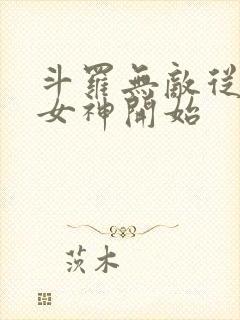 斗羅無敵從
女神開始
茨木